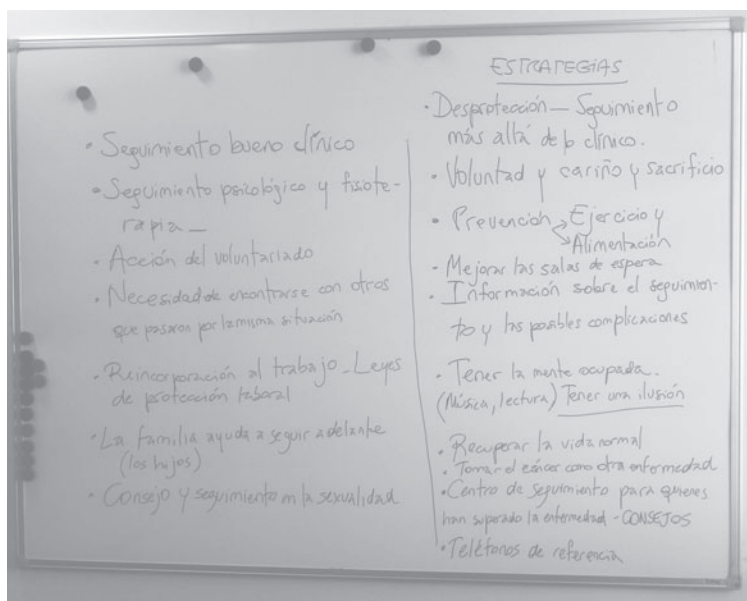 • Seguimiento bueno clínico
• Seguimiento psicológico y fisiote-
rapia_
• Acción del voluntariado
• Necesidad de encontrarse con otros
que pasaron por la misma situación
• Reincorporación al trabajo_Leyes
de protección laboral
• La familia ayuda a seguir adelante
(los hijos)
• Consejo y seguimiento en la sexualidad
ESTRATEGIAS
• Desprotección — Seguimiento
más allá de lo clínico.
• Voluntad y cariño y sacrificio
• Prevención → Ejercicio y
→ Alimentación
• Mejorar las salas de espera
• Información sobre el seguimien-
to y las posibles complicaciones
• Tener la mente ocupada.
(Música, lectura) Tener una ilusión
• Recuperar la vida normal
• Tomar el cáncer como otra enfermedad
• Centro de seguimiento para quienes
han superado la enfermedad - CONSEJOS
• Teléfonos de referencia